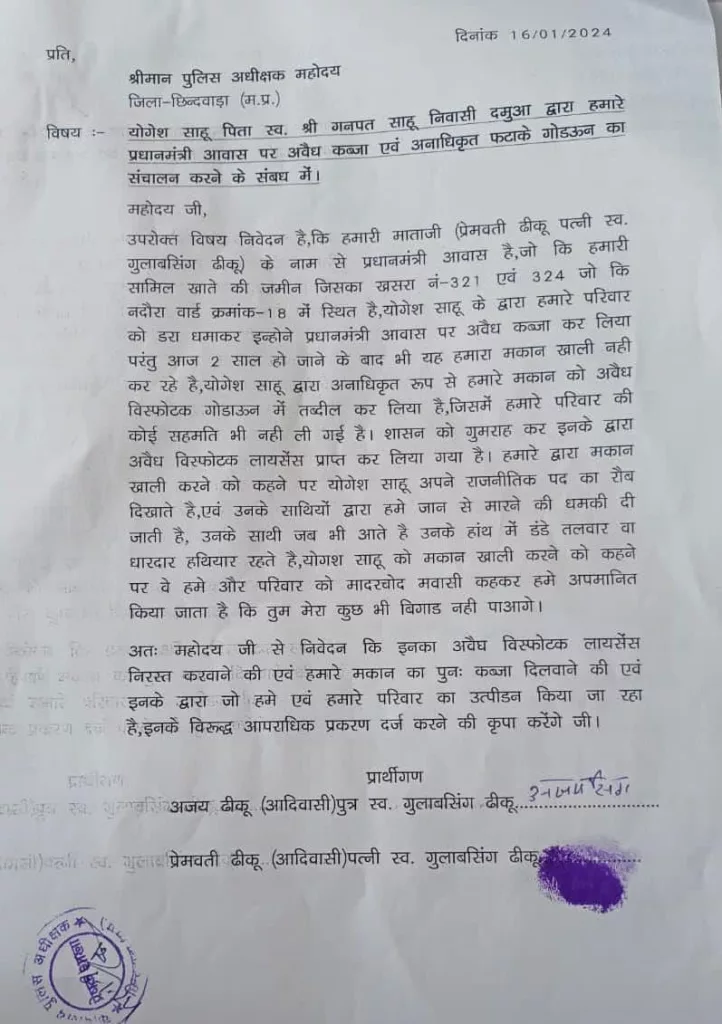 दिनांक 16/01/2024
प्रति,
श्रीमान पुलिस अधीक्षक महोदय
जिला-छिन्दवाड़ा (म.प्र.)
विषय :- योगेश साहू पिता स्व. श्री गनपत साहू निवासी दमुआ द्वारा हमारे
प्रधानमंत्री आवास पर अवैध कब्जा एवं अनाधिकृत फटाके गोडऊन का
संचालन करने के संबध में।
महोदय जी,
उपरोक्त विषय निवेदन है,कि हमारी माताजी (प्रेमवती ढीकू पत्नी स्व.
गुलाबसिंग ढीकू) के नाम से प्रधानमंत्री आवास है,जो कि हमारी
सामिल खाते की जमीन जिसका खसरा नं-321 एवं 324 जो कि
नदौरा वार्ड क्रमांक-18 में स्थित है,योगेश साहू के द्वारा हमारे परिवार
को डरा धमाकर इन्होने प्रधानमंत्री आवास पर अवैध कब्जा कर लिया
परंतु आज 2 साल हो जाने के बाद भी यह हमारा मकान खाली नही
कर रहे है,योगेश साहू द्वारा अनाधिकृत रूप से हमारे मकान को अवैध
विस्फोटक गोडाऊन में तब्दील कर लिया है,जिसमें हमारे परिवार की
कोई सहमति भी नही ली गई है। शासन को गुमराह कर इनके द्वारा
अवैध विस्फोटक लायसेंस प्राप्त कर लिया गया है। हमारे द्वारा मकान
खाली करने को कहने पर योगेश साहू अपने राजनीतिक पद का रौब
दिखाते है,एवं उनके साथियों द्वारा हमे जान से मारने की धमकी दी
जाती है, उनके साथी जब भी आते है उनके हांथ में डंडे तलवार वा
धारदार हथियार रहते है,योगश साहू को मकान खाली करने को कहने
पर वे हमे और परिवार को मादरचोद मवासी कहकर हमे अपमानित
किया जाता है कि तुम मेरा कुछ भी बिगाड नही पाआगे।
अतः महोदय जी से निवेदन कि इनका अवैध विस्फोटक लायसेंस
निरस्त करवाने की एवं हमारे मकान का पुनः कब्जा दिलवाने की एवं
इनके द्वारा जो हमे एवं हमारे परिवार का उत्पीडन किया जा रहा
है,इनके विरूद्ध आपराधिक प्रकरण दर्ज करने की कृपा करेंगे जी।
प्रार्थीगण
अजय ढीकू (आदिवासी)पुत्र स्व. गुलाबसिंग ढीकू
प्रेमवती ढीकू (आदिवासी)पत्नी स्व. गुलाबसिंग ढीकू
पुलिस अधीक्षक